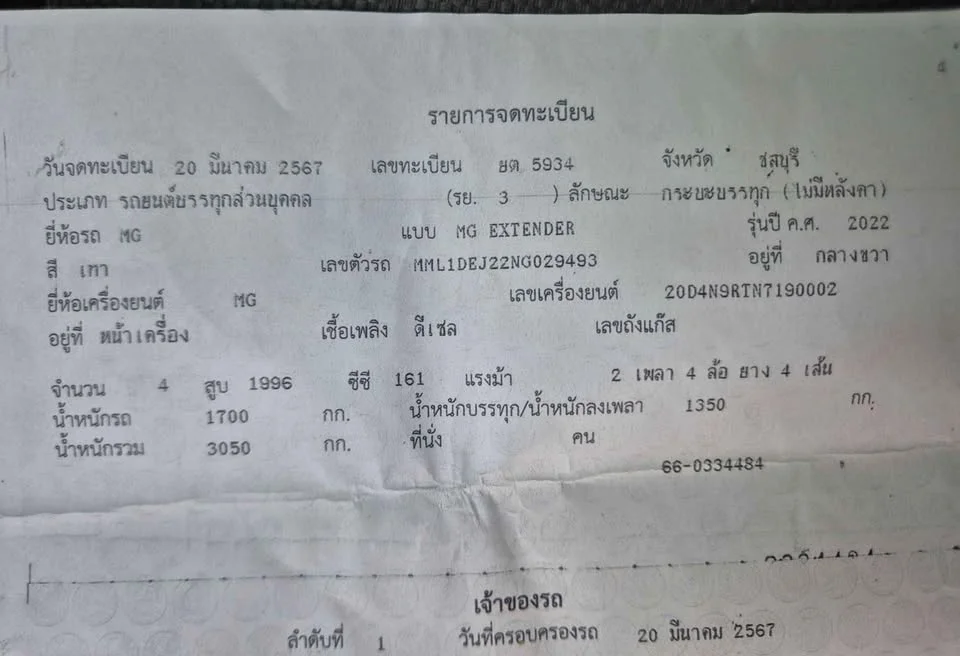 รายการจดทะเบียน
วันจดทะเบียน 20 มีนาคม 2567 เลขทะเบียน ยต 5934 จังหวัด ชลบุรี
ประเภท รถยนต์บรรทุกส่วนบุคคล (รย. 3 ) ลักษณะ กระบะบรรทุก (ไม่มีหลังคา)
ยี่ห้อรถ MG แบบ MG EXTENDER รุ่นปี ค.ศ. 2022
สี เทา เลขตัวรถ MML1DEJ22NG029493 อยู่ที่ กลางขวา
ยี่ห้อเครื่องยนต์ MG เลขเครื่องยนต์ 20D4N9RTN7190002
อยู่ที่ หน้าเครื่อง เชื้อเพลิง ดีเซล เลขถังแก๊ส
จำนวน 4 สูบ 1996 ซีซี 161 แรงม้า 2 เพลา 4 ล้อ ยาง 4 เส้น
น้ำหนักรถ 1700 กก. น้ำหนักบรรทุก/น้ำหนักลงเพลา 1350 กก.
น้ำหนักรวม 3050 กก. ที่นั่ง คน
66-0334484
เจ้าของรถ
ลำดับที่ 1 วันที่ครอบครองรถ 20 มีนาคม 2567